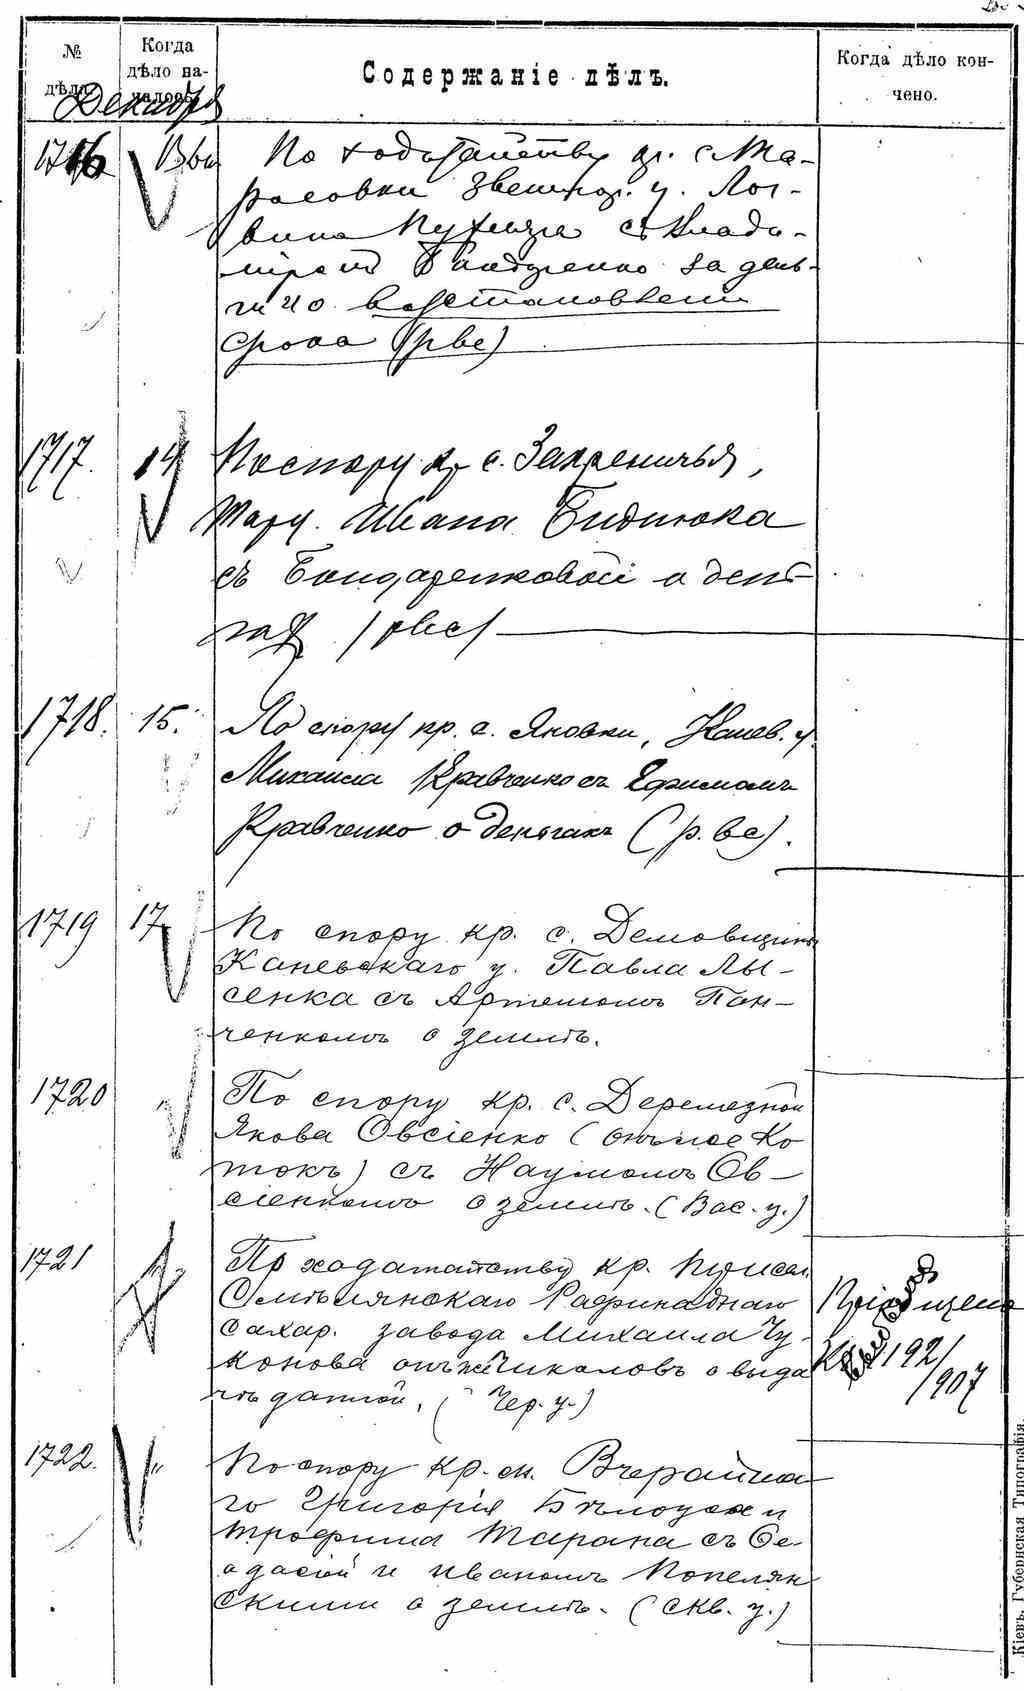 № дѣла.
Когда дѣло на-
чалось.
Содержаніе дѣлъ.
Когда дѣло кон-
чено.
Декабря
1716 13
По ходатайству кр. с. Та-
расовки Звениг. у. Лог-
вина
за день-
ги и о возстановленіи
срока (рвс)
1717. 14
По спору кр. с.
Тар у. Ивана
съ Бондаренковой о день-
гах /рвс/
1718. 15.
По спору кр. с. Яновки, Канев. у.
Михаила Кравченко съ Ефимомъ
Кравченко о деньгахъ (р. вс).
1719 17
По спору кр. с. Демовщины
Каневскаго у. Павла Лы-
сенка съ Артемомъ Пан-
ченкомъ о землѣ.
1720 "
По спору кр. с. Деремезной
Якова Овсіенко (онъ же Ко
токъ) съ Наумомъ Ов-
сіенкомъ о землѣ. (Вас. у.)
1721
По ходатайству кр.
Смѣлянскаго Рафинаднаго
сахар. завода Михаила Чу-
конова онъ же Чикаловъ о выда
чѣ данной, (Чер. у.)
192/
907
1722. "
По спору кр. м. Вчерайша-
го Григорія Бѣлоуса и
Трофима Тарана съ Ѳе-
одосіей и Иваномъ Попелян
скими о землѣ. (Скв. у.)
Кіевъ. Губернская Типографія.